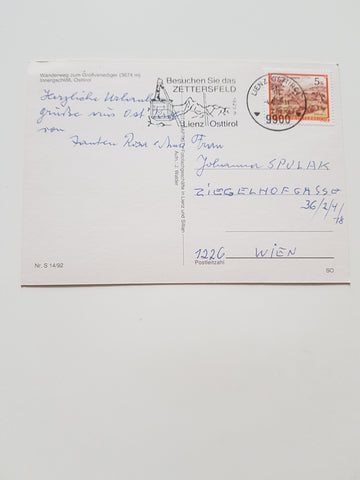 Wanderweg zum Großvenediger (3674 m)
Innergschlöß, Osttirol
Besuchen Sie das
ZETTERSFELD
Lienz Osttirol
LIENZ, OSTTIROL
9900
5 S
Herzliche Urlaubs
grüße aus Ost
von
Tanten Rosa
Frau
Johanna SPULAK
ZIEGELHOFGASSE
36/2/4/
18
1226 WIEN
Postleitzahl
Nr. S 14/92
SO